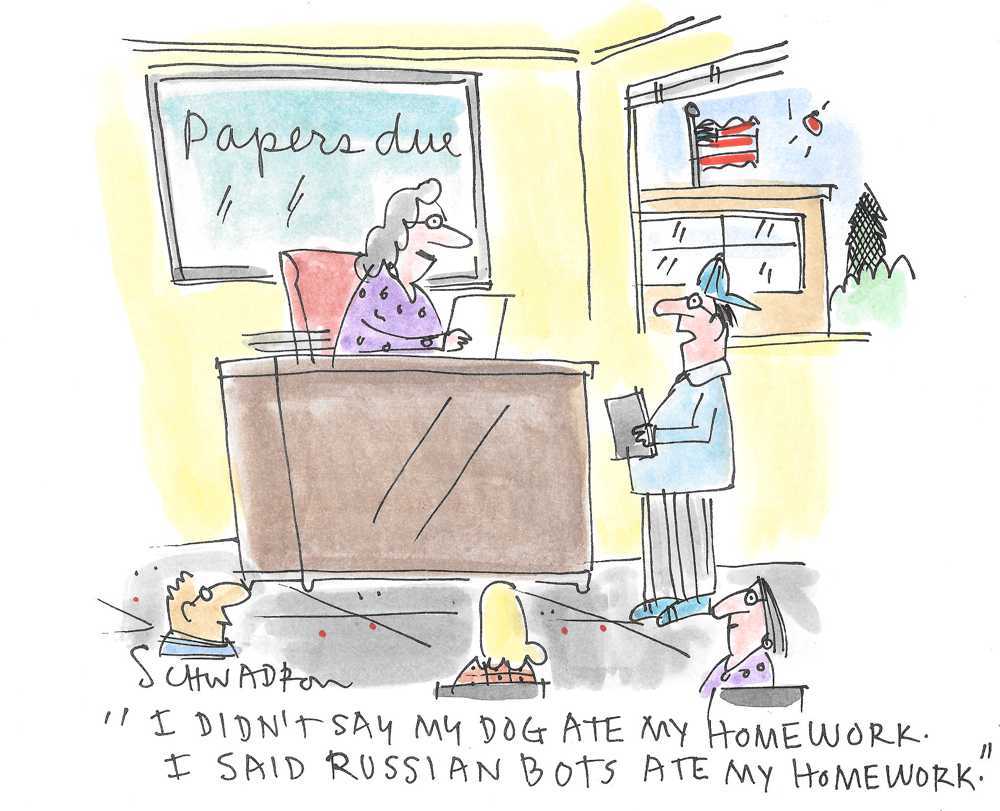 Papers due
SCHWADRON
"I DIDN'T SAY MY DOG ATE MY HOMEWORK.
I SAID RUSSIAN BOTS ATE MY HOMEWORK."